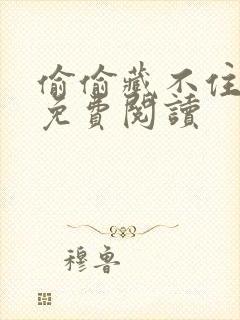 偷偷藏不住
免費閱讀
穆魯